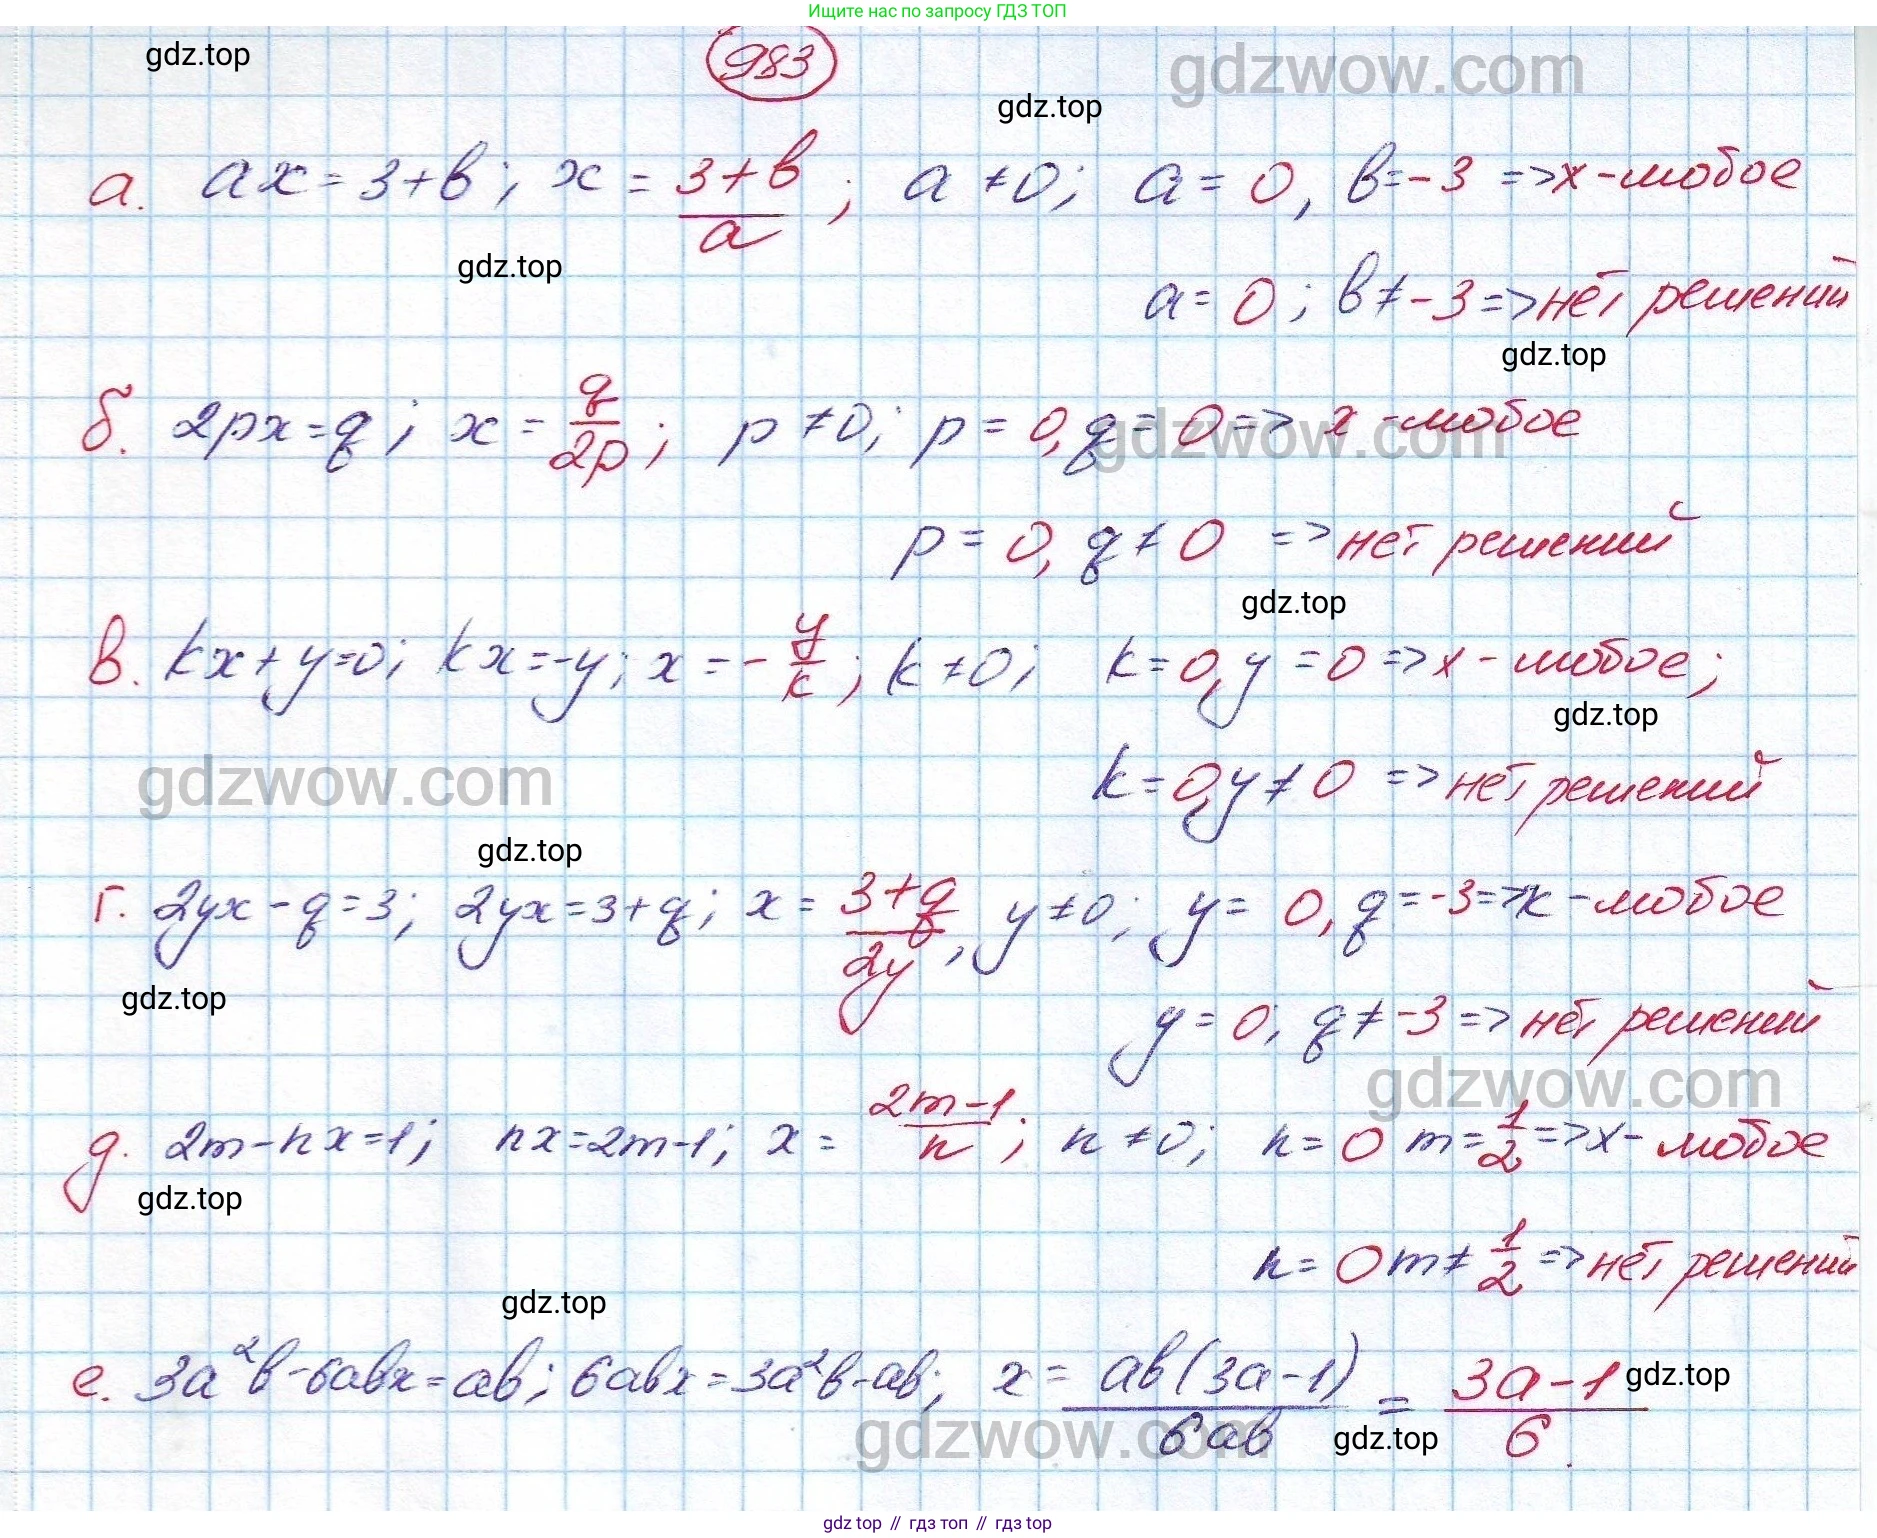 Ищите нас по запросу ГДЗ ТОП
gdz.top
983
gdzwow.com
gdz.top
а. ax = 3+b; x = \frac{3+b}{a}; a ≠ 0; a = 0, b = -3 => x - любое
gdz.top
a = 0; b ≠ -3 => нет решений
gdz.top
б. 2px = q; x = \frac{q}{2p}; p ≠ 0; p = 0, q = 0 => x - любое
gdzwow.com
p = 0, q ≠ 0 => нет решений
gdz.top
в. kx + y = 0; kx = -y; x = -\frac{y}{k}; k ≠ 0; k = 0, y = 0 => x - любое;
gdz.top
gdzwow.com
k = 0, y ≠ 0 => нет решений
gdz.top
г. 2yx - q = 3; 2yx = 3 + q; x = \frac{3+q}{2y}, y ≠ 0; y = 0, q = -3 => x - любое
gdz.top
y = 0; q ≠ -3 => нет решений
gdzwow.com
д. 2m - nx = 1; nx = 2m - 1; x = \frac{2m-1}{n}; n ≠ 0; n = 0 m = \frac{1}{2} => x - любое
gdz.top
n = 0 m ≠ \frac{1}{2} => нет решений
gdz.top
е. 3a²b - 6abx = ab; 6abx = 3a²b - ab; x = \frac{ab(3a-1)}{6ab} = \frac{3a-1}{6}.
gdz.top
gdzwow.com
gdz.top
gdz top // гдз топ // gdz top